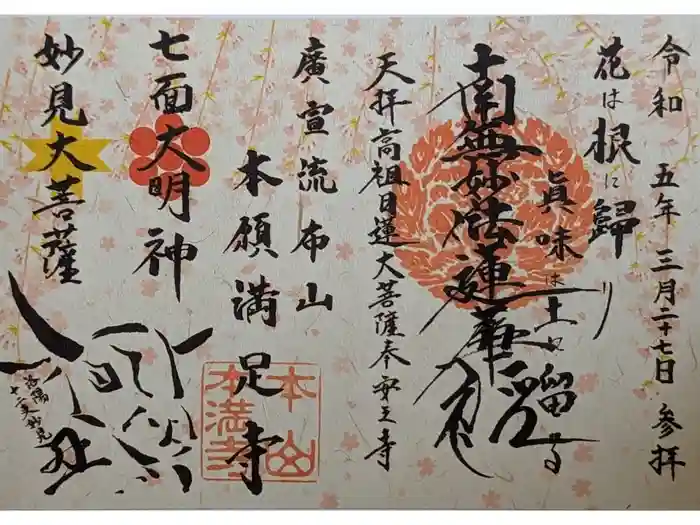 令和五年三月二十七日 参拝
花は根に歸り
眞味は土に留る
南無妙法蓮華経
天拝高祖日蓮大菩薩奉安之寺
廣宣流布山
本願満足寺
七面大明神
妙見大菩薩
洛陽
十二支妙見
本山
本満寺